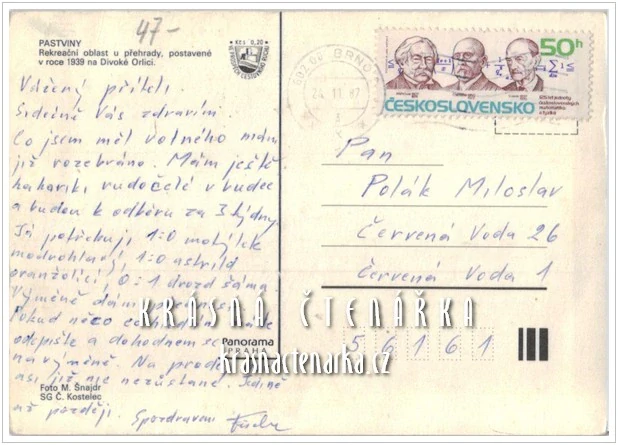 47-
PASTVINY
Rekreační oblast u přehrady, postavené
v roce 1939 na Divoké Orlici.
Kčs 0,20
Vážený příteli
Srdečně Vás zdravím.
Co jsem měl volného mám
již rozebráno. Mám ještě
kakariki rudočelé v budce
a budou k odběru za 3 týdny.
Já potřebuji 1:0 motýlek
modrohlavý, 1:0 astrild
oranžolící, 0:1 drozd šáma.
Výměně dám
Pokud něco
odepište a dohodnem se
na výměně. Na prodej
asi již nic nezůstane. Jedině
až později. Spozdravem
Foto M. Šnajdr
SG Č. Kostelec
Panorama
PRAHA
BRNO
24.11.87
50h
ČESKOSLOVENSKO
Pan
Polák Miloslav
Červená Voda 26
Červená Voda 1
56161
KRÁSNÁ ČTENÁŘKA
krasnactenarka.cz